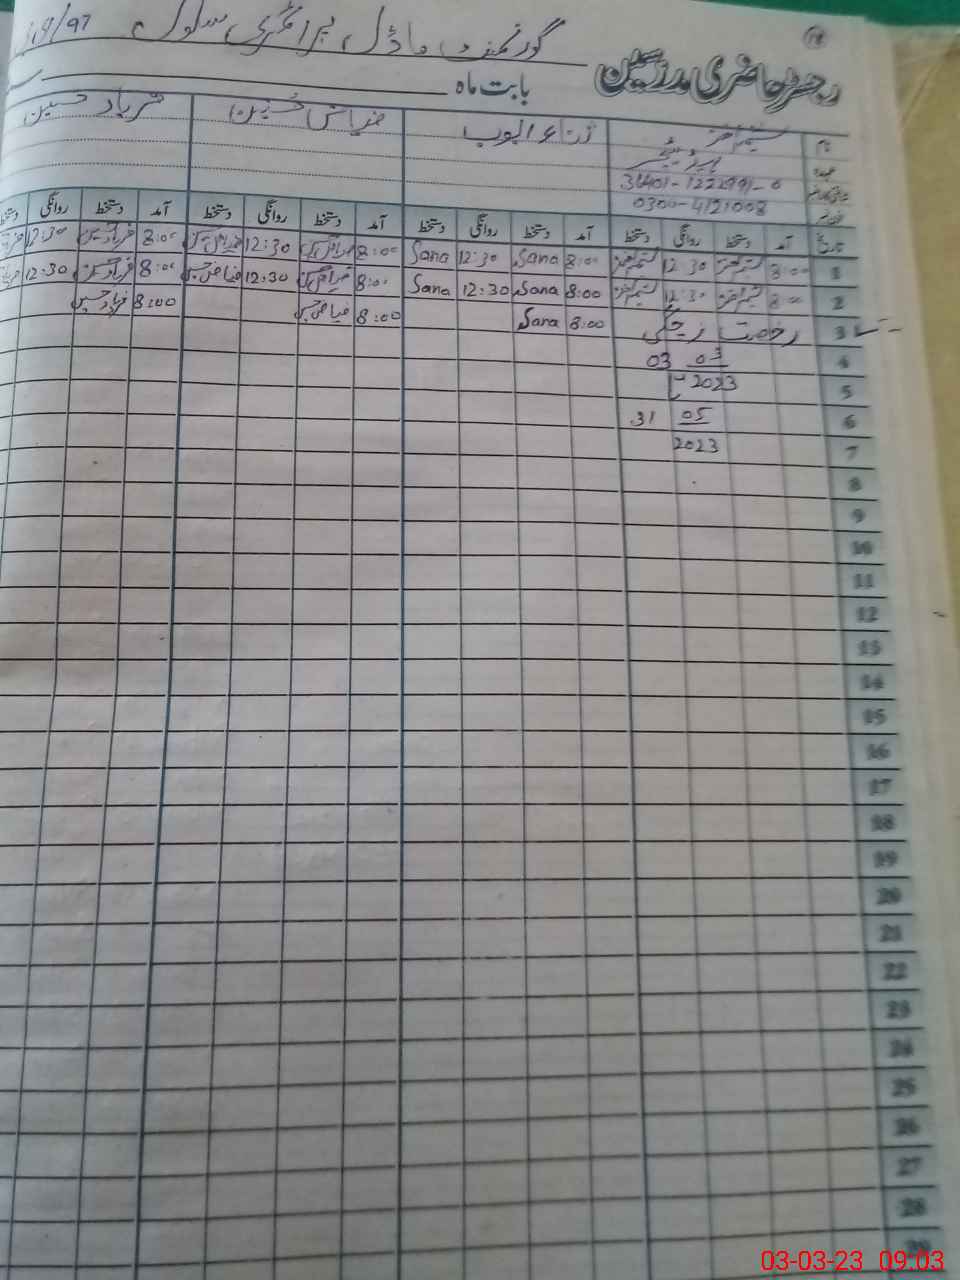 18
گورنمنٹ ماڈل پرائمری سکول 19/97
رجسٹر حاضری مدرسین
بابت ماہ
نام ثناء ایوب فیاض حسین فریاد حسین
عہدہ
36401-1222991-0
0300-4121008
تاریخ آمد دستخط روانگی دستخط آمد دستخط روانگی دستخط آمد دستخط روانگی دستخط آمد دستخط روانگی دستخط
1 8:00 12:30 8:00 Sana 12:30 Sana 8:00 فیاض حسین 12:30 فیاض حسین 8:00 فریاد حسین 12:30
2 8:00 12:30 8:00 Sana 12:30 Sana 8:00 فیاض حسین 12:30 فیاض حسین 8:00 فریاد حسین 12:30
3 رخصت زچگی 8:00 Sana 8:00 فیاض حسین 8:00 فریاد حسین
4 03 03
5 2023
6 31 05
7 2023
8
9
10
11
12
13
14
15
16
17
18
19
20
21
22
23
24
25
26
27
28
29
03-03-23 09:03